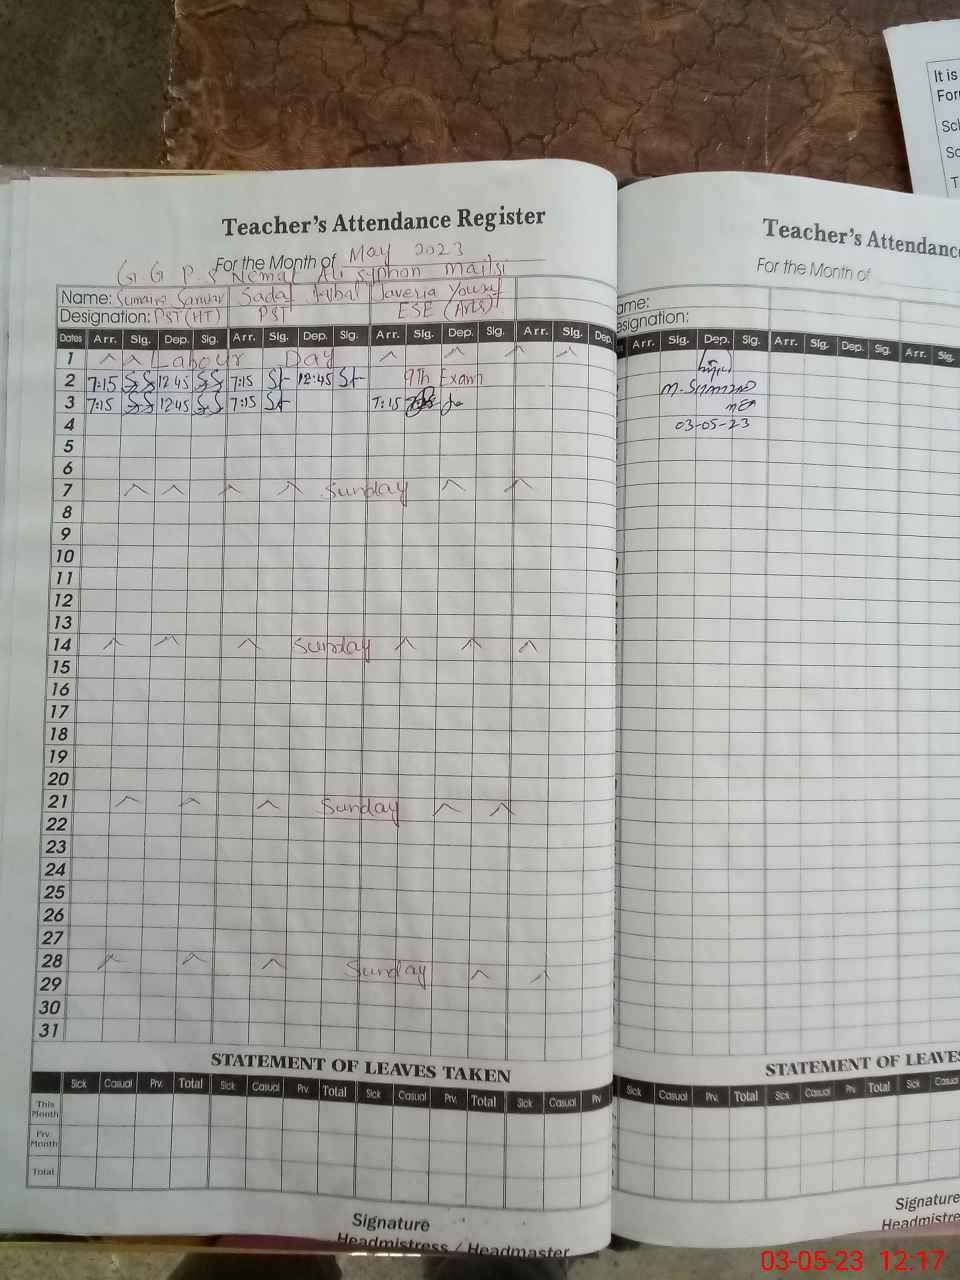 It is
For
Sch
Sc
T
Teacher's Attendance Register
For the Month of May 2023
G G P S Nemat Ali Syphon Mailsi
Name: Sumaira Sarwar Sadaf Iqbal Javeria Yousaf
Designation: PST (HT) PST ESE (Arts)
Dates Arr. Sig. Dep. Sig. Arr. Sig. Dep. Sig. Arr. Sig. Dep. Sig. Arr. Sig. Dep.
1 Labour Day
2 7:15 12:45 7:15 12:45 9th Exam
3 7:15 12:45 7:15 7:15
4
5
6
7 Sunday
8
9
10
11
12
13
14 Sunday
15
16
17
18
19
20
21 Sunday
22
23
24
25
26
27
28 Sunday
29
30
31
STATEMENT OF LEAVES TAKEN
Sick Casual Prv. Total Sick Casual Prv. Total Sick Casual Prv. Total Sick Casual Prv
This Month
Prv. Month
Total
Signature
Headmistress / Headmaster
Teacher's Attendance
For the Month of
ame:
esignation:
Arr. Sig. Dep. Sig. Arr. Sig. Dep. Sig. Arr. Sig.
MEA
03-05-23
STATEMENT OF LEAVES
Sick Casual Prv. Total Sick Casual Prv Total Sick Casual
Signature
Headmistre
03-05-23 12:17